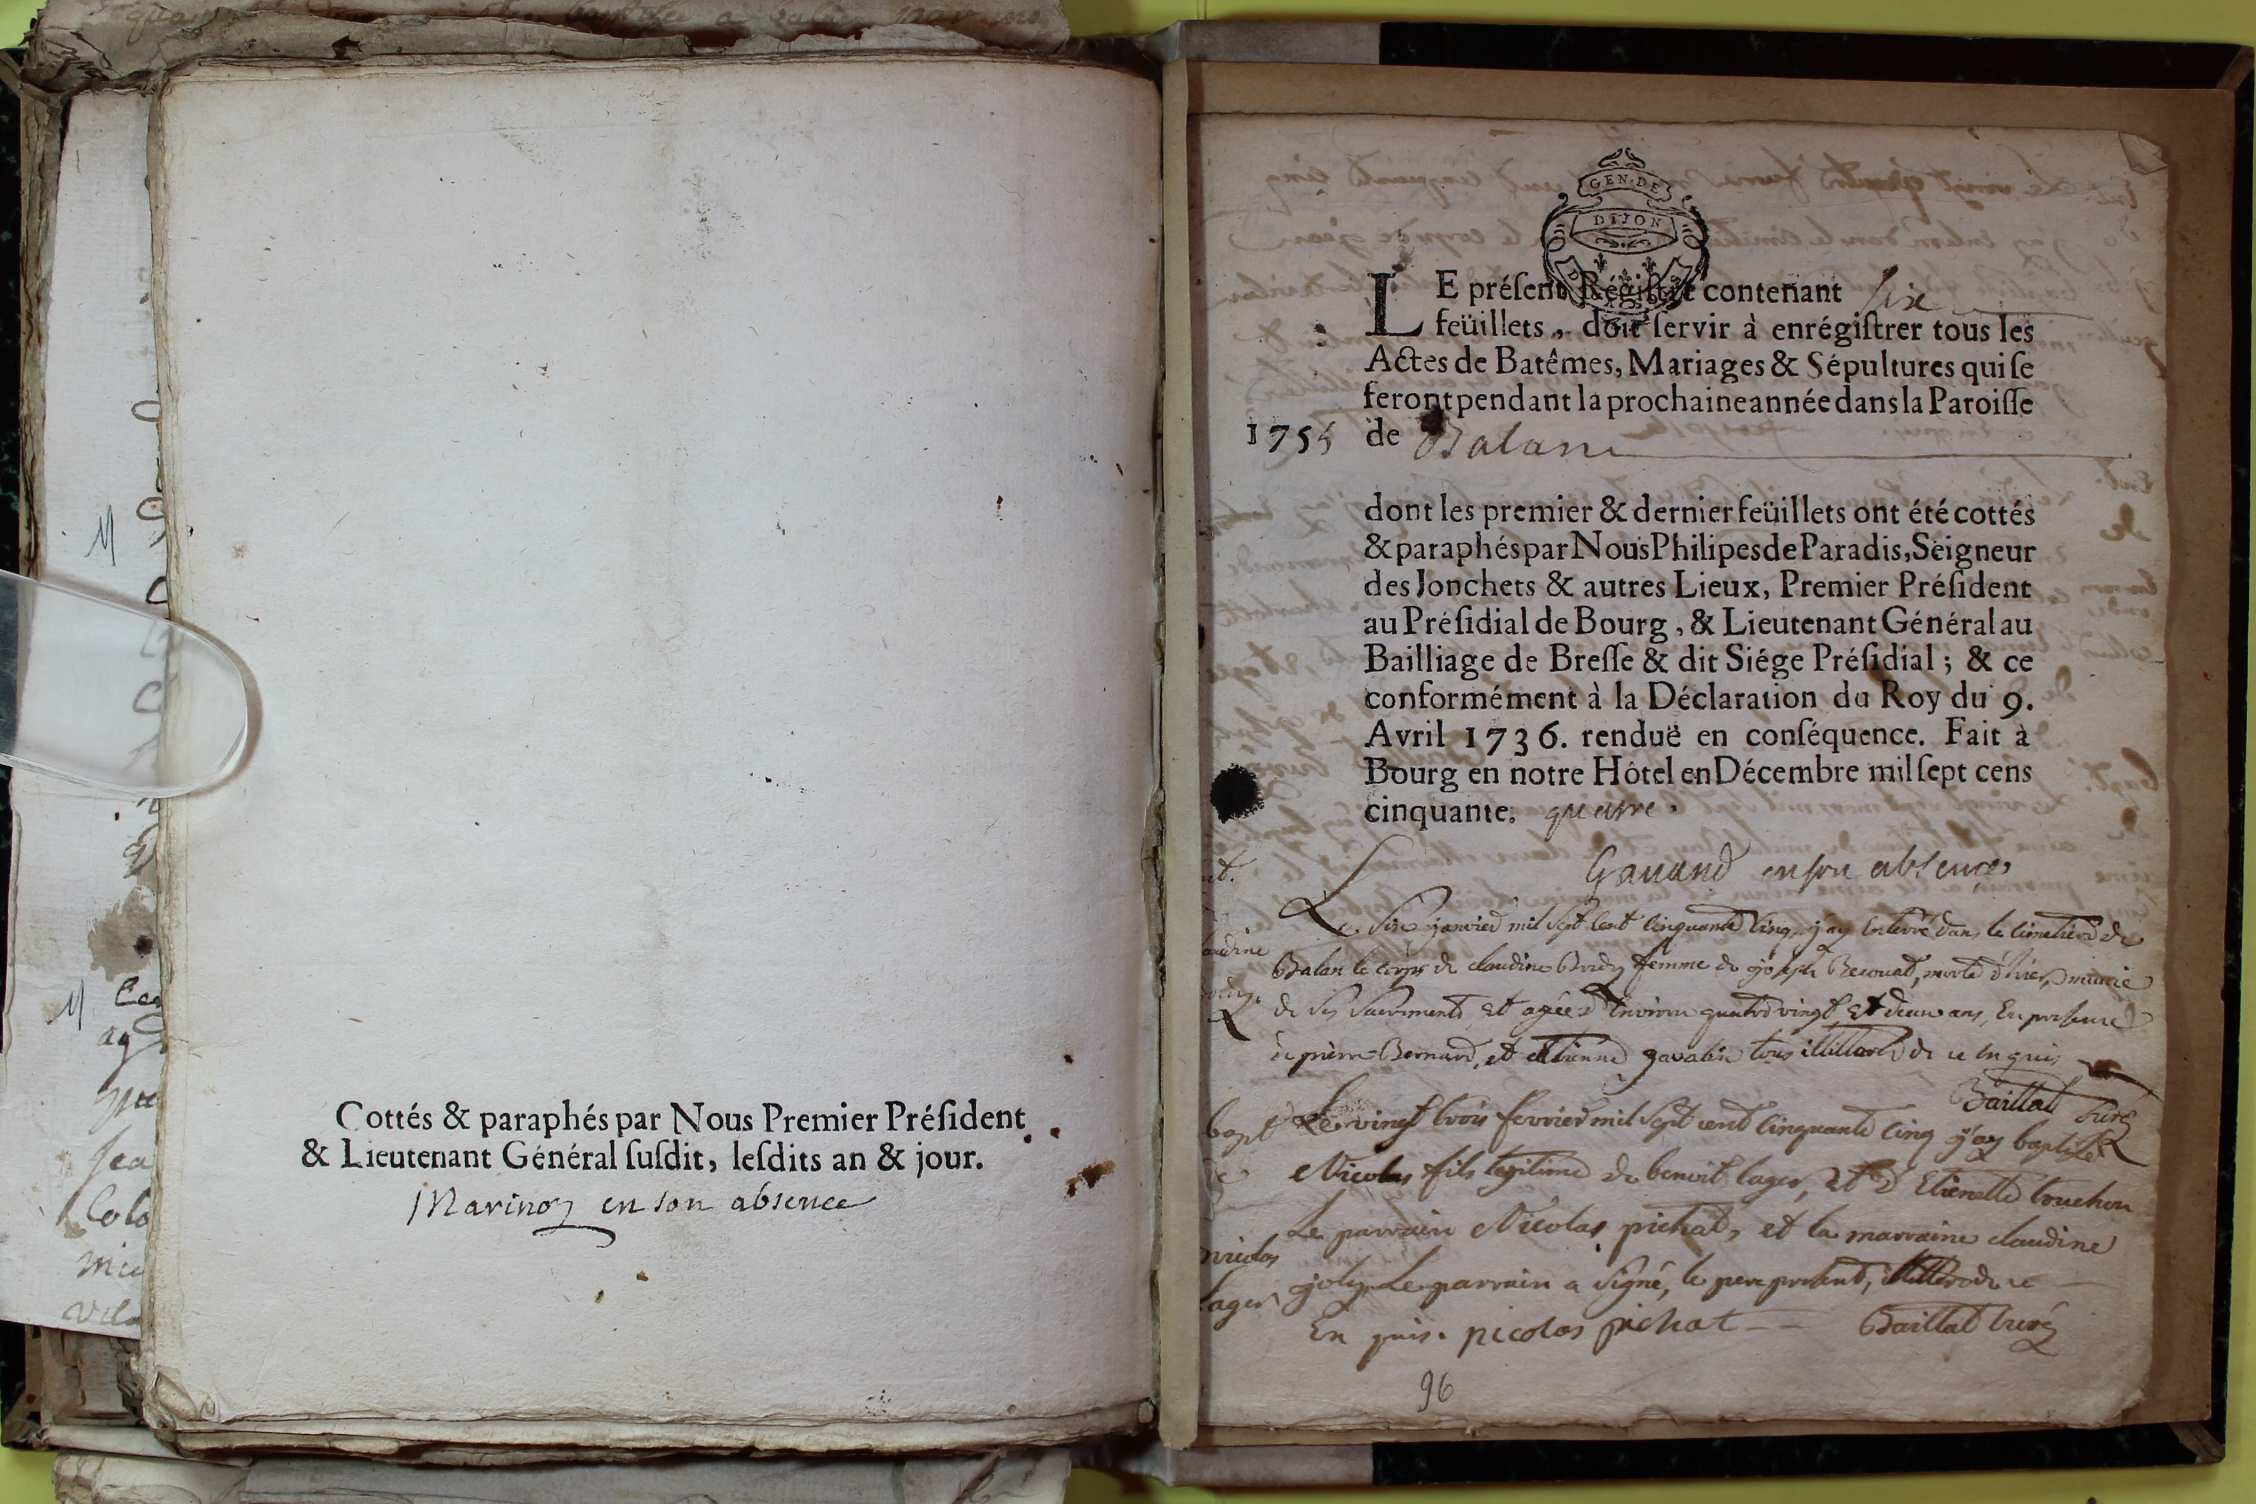 Cottés & paraphés par Nous Premier Préſident
& Lieutenant Général ſuſdit, leſdits an & jour.
Marinoz en son absence
GEN·DE
DIJON
LE préſent Régiſtre contenant Six
feüillets, doit ſervir à enrégiſtrer tous les
Actes de Batêmes, Mariages & Sépultures qui ſe
feront pendant la prochaine année dans la Paroiſſe
1755 de Balan
dont les premier & dernier feüillets ont été cottés
& paraphés par Nous Philipes de Paradis, Seigneur
des Jonchets & autres Lieux, Premier Préſident
au Préſidial de Bourg, & Lieutenant Général au
Bailliage de Breſſe & dit Siége Préſidial; & ce
conformément à la Déclaration du Roy du 9.
Avril 1736. renduë en conſéquence. Fait à
Bourg en notre Hôtel en Décembre mil ſept cens
cinquante. quatre.
Gauand en son absence
Le Six janvier mil Sept cent cinquante cinq, j'ay enterré dans le cimetiere de
Balan le corps de claudine femme de joseph morte d'hier, munie
de Ses Sacrements et agée d'environ quatre vingt et deux ans, En presence
de pierre Bernard, et etienne gavalin tous illitterés de ce enquis
Baillat Curé
bapt Le vingt trois fevrier mil Sept cent cinquante cinq j'ay baptisé
de Nicolas fils legitime de benoit lager, et d'Etienette bouchon
Le parrain Nicolas pichat, et la marraine claudine
nicolas
lager joly Le parrain a Signé, le pere present, illitteré de ce
En quis. nicolas pichat Baillat Curé
96